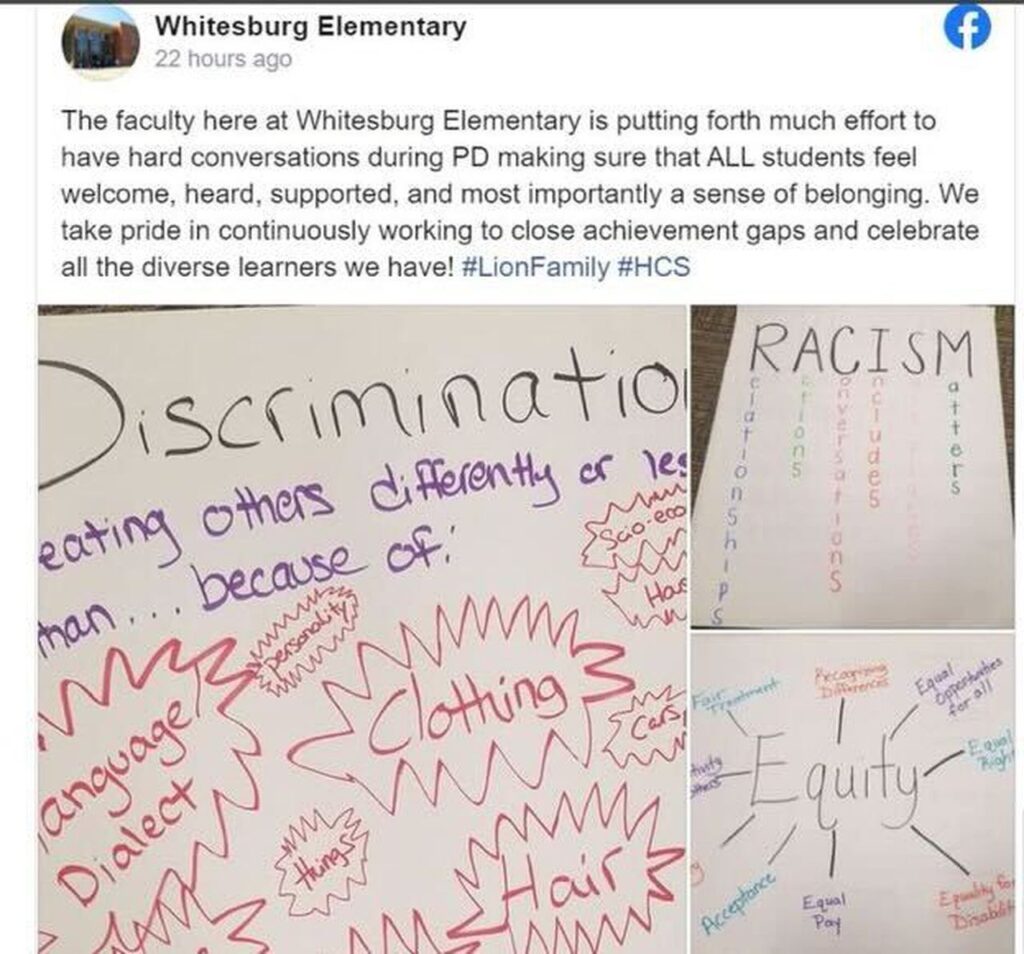 Whitesburg Elementary
22 hours ago
The faculty here at Whitesburg Elementary is putting forth much effort to
have hard conversations during PD making sure that ALL students feel
welcome, heard, supported, and most importantly a sense of belonging. We
take pride in continuously working to close achievement gaps and celebrate
all the diverse learners we have! #LionFamily #HCS
Discriminatio
eating others differently or les
han... because of:
Scio-eco
Has
Personality
Clothing
Cars,
Language
Dialect
things
Hair
RACISM
elationships
ctions
onversations
ncludes
atters
Fair
Treatment
Recognizing
Differences
Equal
Opportunities
for all
Equal
Right
Equity
Acceptance
Equal
Pay
Equality for
Disabilit